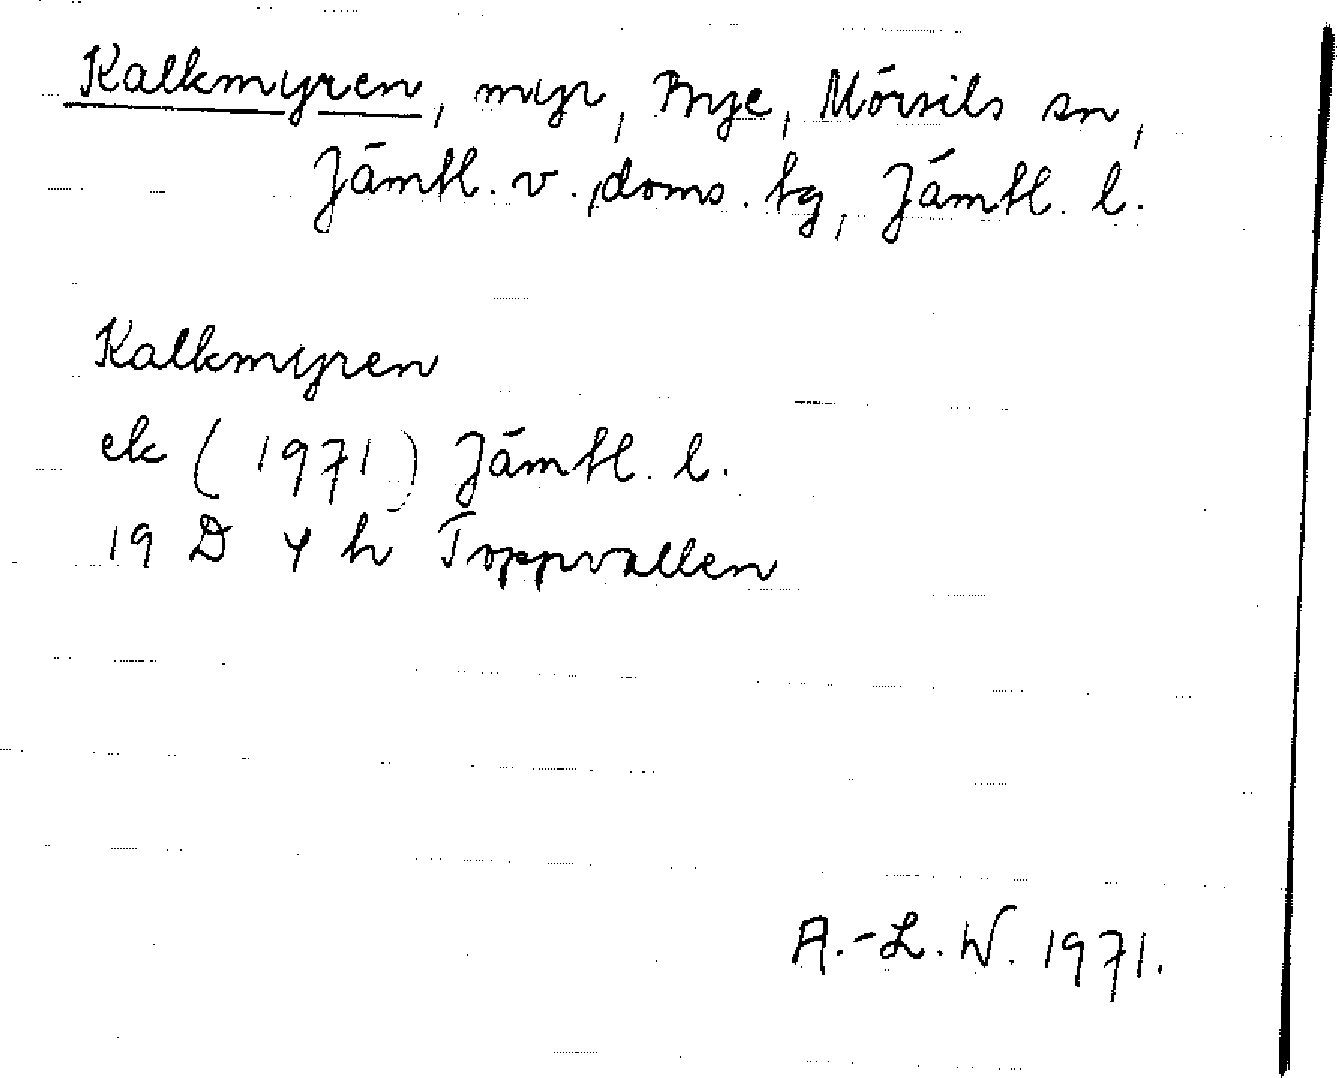 Kalkmyren, myr, Bye, Mörsils sn,
Jämtl. v. doms. tg, Jämtl. l.
Kalkmyren
ek (1971) Jämtl. l.
19 D 4 h Toppvallen
A.-L. W. 1971.